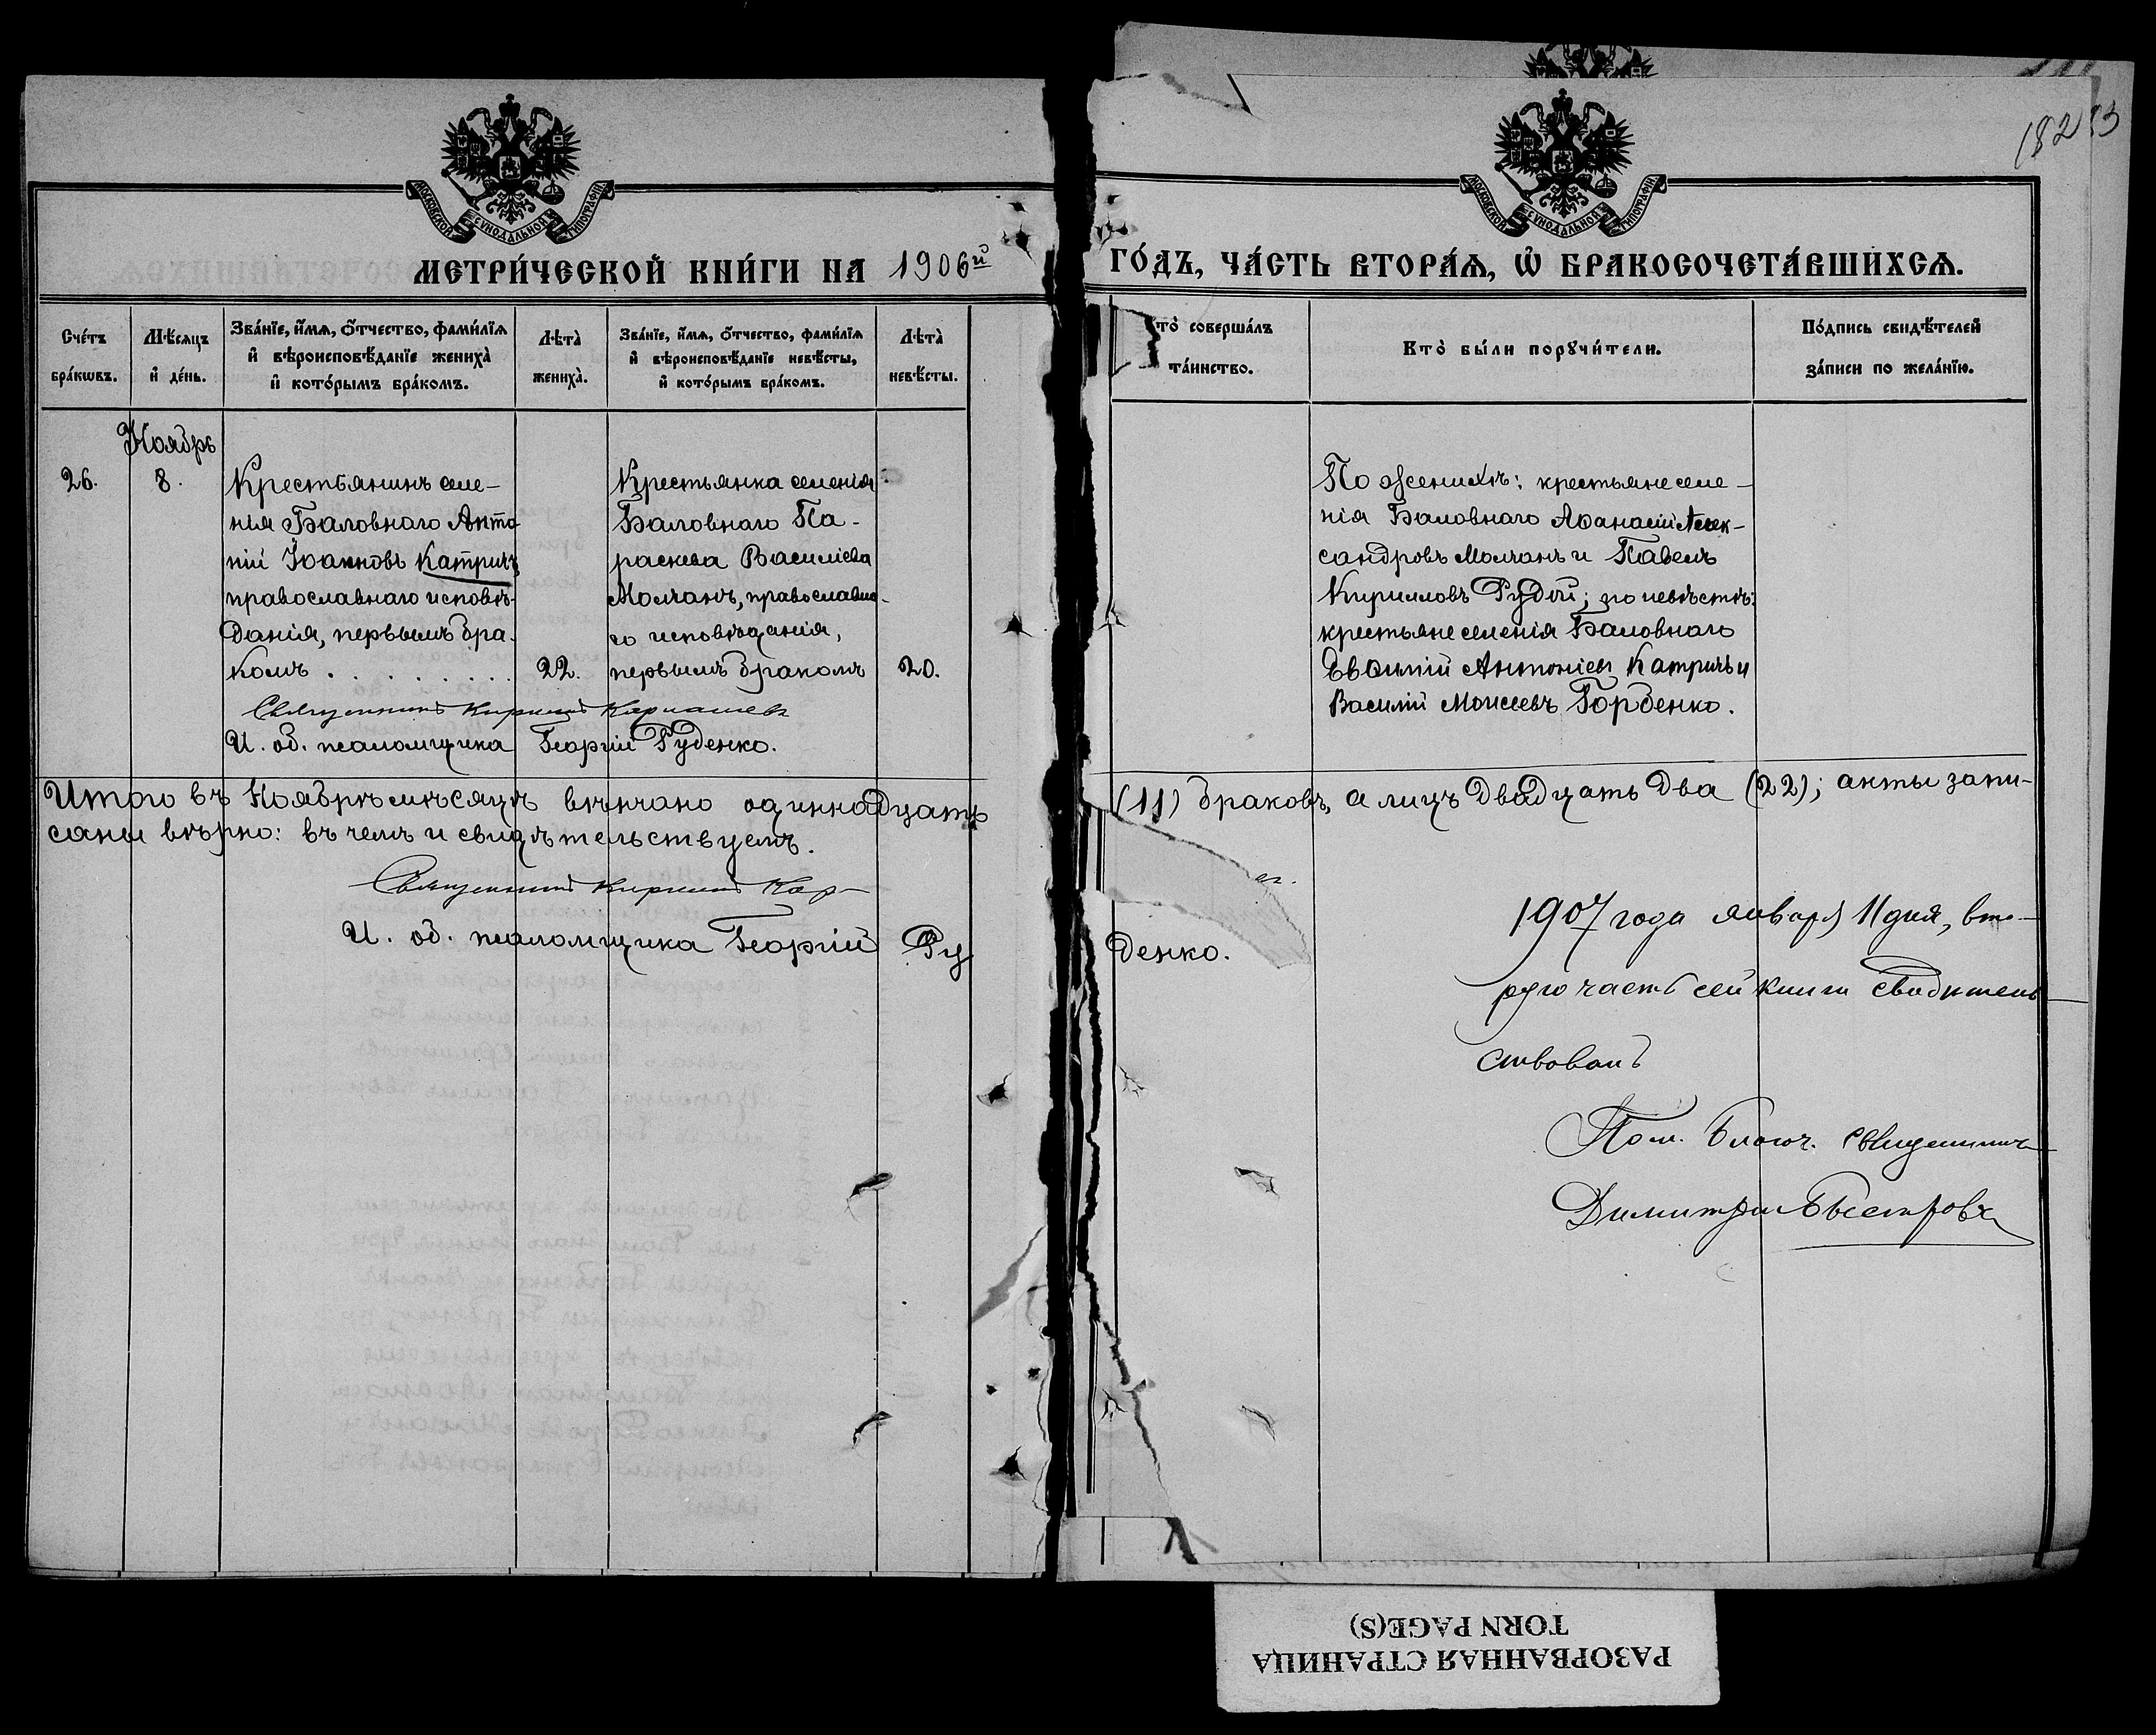 МОСКОВСКОЙ СѴНОДАЛЬНОЙ ТИПОГРАФІИ
МОСКОВСКОЙ СѴНОДАЛЬНОЙ ТИПОГРАФІИ
182 83
МЕТРИ́ЧЕСКОЙ КНИ́ГИ НА 1906й
ГО́ДЪ, ЧА́СТЬ ВТОРА́Ѧ, Ѡ҆ БРАКОСОЧЕТА́ВШИХСѦ.
Сче́тъ
бра́кѡвъ.
Мѣ́сяцъ
и҆ де́нь.
Зва́нїе, и҆́мѧ, ѻ҆́тчество, фами́лїѧ
и҆ вѣроисповѣ́данїе жениха̀
и҆ кото́рымъ бра́комъ.
Лѣта̀
жениха̀.
Зва́нїе, и҆́мѧ, ѻ҆́тчество, фами́лїѧ
и҆ вѣроисповѣ́данїе невѣ́сты,
и҆ кото́рымъ бра́комъ.
Лѣта̀
невѣ́сты.
то̀ соверша́лъ
та́инство.
Кто̀ бы́ли порꙋчи́тели.
По́дпись свидѣ́телей
за́писи по жела́нїю.
Ноябрь
26.
8.
Крестьянинъ селе-
нія Баловнаго Анто
ній Іоанновъ Катричъ
православнаго исповѣ-
данія, первымъ бра-
комъ . . . . . . . . .
22.
Крестьянка селенія
Баловнаго Па-
раскева Василіева
Молчанъ, православна-
го исповѣданія,
первымъ бракомъ
20.
По женихѣ: крестьяне селе-
нія Баловнаго Аѳанасій Алек-
сандровъ Молчанъ и Павелъ
Кирилловъ Рудой; по невѣстѣ:
крестьяне селенія Баловнаго
Евѳимій Антоніевъ Катричъ и
Василій Моисеевъ Горбенко.
Священникъ Кириллъ
И. об. псаломщика Георгій Руденко.
Итого въ Ноябрѣ мѣсяцѣ вѣнчано одиннадцать (11) браковъ, а лицъ двадцать два (22); акты запи-
саны вѣрно: въ чемъ и свидѣтельствуемъ.
Священникъ Кириллъ Кар-
И. об. псаломщика Георгій Руденко.
1907 года января 11 дня, вто-
рую часть сей книги свидѣтель
ствовалъ
Пом. Благоч. священникъ
Димитрій Быстровъ
РАЗОРВАННАЯ СТРАНИЦА
TORN PAGE(S)